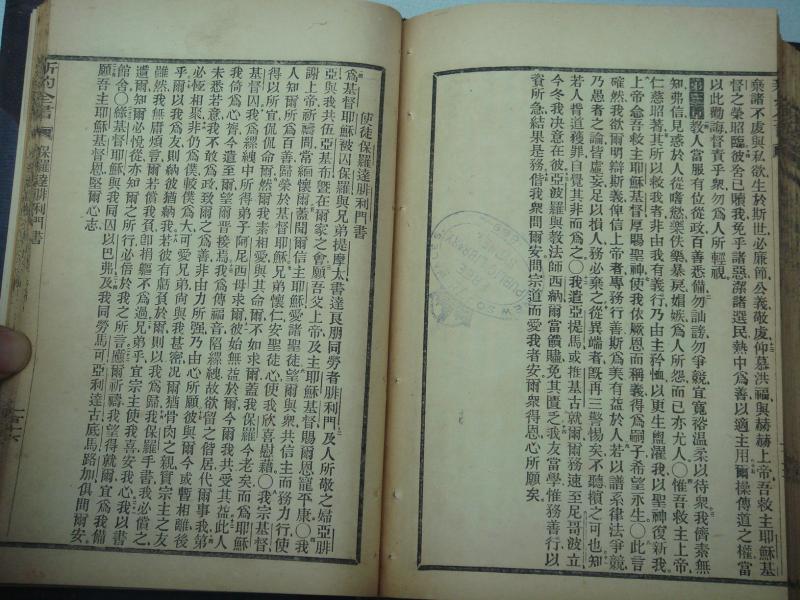 棄諸不虔與私欲生於斯世必廉節公義敬虔仰慕洪福與赫赫上帝吾救主耶穌基
督之榮昭臨彼舍己贖我免乎諸惡潔諸選民熱中爲善以適主用爾操傳道之權當
以此勸誨督責乎衆勿爲人所輕視
第三章教人當服有位從政百善悉備勿訕謗勿爭競宜寬裕温柔以待衆我儕素無
知弗信見惑於人從嗜慾樂佚樂暴戾媢嫉爲人所怨而已亦尤人〇惟吾救主上帝
仁慈昭著其所以救我者非由我有義行乃由主矜恤以更生盥濯我以聖神復新我
上帝僉吾救主耶穌基督厚賜聖神使我依厥恩而稱義得爲嗣子希望永生〇此言
確然我欲爾明辯斯義俾信上帝者專務行善斯爲美有益於人若以譜系律法爭競
乃愚者之論皆虛妄足以損人務必棄之從異端者旣再三警惕矣不聽槓之可也知
若人背道獲罪自覺其非而爲之〇我遣亞提馬或推基古就爾爾務速至尼哥波立
今冬我決意在彼亞波羅與教法師西納爾當餽贐免其匱乏我友當學惟務善行以
資所急結果是務偕我衆問爾安問宗道而愛我者安爾衆得恩心所願矣
使徒保羅達腓利門書
爲基督耶穌被囚保羅與兄弟提摩太書達良朋同勞者腓利門及人所敬之婦亞腓
亞與我共伍亞基布曁在爾家之會願吾父上帝及主耶穌基督賜爾恩寵平康〇我
謝上帝祈禱間常緬懷爾蓋聞爾信主耶穌愛諸聖徒望爾與衆共信主而務力行使
人知爾所爲百善歸榮於基督耶穌兄弟懷仁安聖徒心使我欣喜慰藉〇我宗基督
得以所宜侃侃命爾然爾我素相愛與其命爾不如求爾蓋我保羅今老矣而爲耶穌
基督囚我爲縲絏中所得弟子阿尼西母求爾彼始無益於爾今爾我共受其益此人
我倚爲心膂今遣至爾望爾晉接焉我爲傳福音陷縲絏故欲留之偕居代爾事我第
未悉若意我不敢爲政致爾之爲善非由力所强乃由心所願彼與爾今或暫相離後
必恆相聚非仍爲僕較僕爲大可愛兄弟尙與我甚密況爾猶骨肉之親實宗主之友
乎爾以我爲友則納彼猶納我若彼有虧負於爾則以我爲歸我保羅手書我必償之
雖然我無庸煩言爾若償我負卽捐軀不爲過兄弟乎宜宗主使我喜安我心我以書
遣爾知爾必悅從亦知爾之所行必倍於我之所言應爾祈禱我望得就爾宜爲我備
館舍〇緣基督耶穌與我同囚以巴弗及我同勞馬可亞利達古底馬路加俱問爾安
願吾主耶穌基督恩堅爾心志
新約全書
保羅達腓利門書